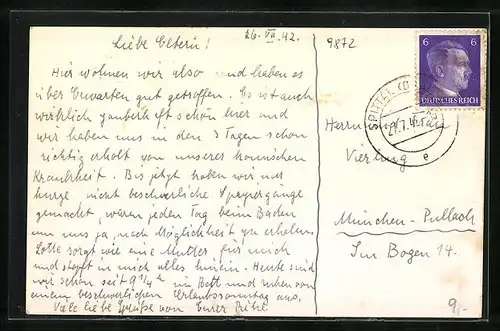 26. VII. 42.
Liebe Eltern!
Hier wohnen wir also und haben es
über Erwarten gut getroffen. Es ist auch
wirklich zauberhaft schön hier und
wir haben uns in den 3 Tagen schon
richtig erholt von unserer komischen
Krankheit. Bis jetzt haben wir nur
kurze nicht beschwerliche Spaziergänge
gemacht, waren jeden Tag beim Baden
um uns ja nach Möglichkeit zu erholen.
Lotte sorgt wie eine Mutter für mich
und stopft in mich alles hinein. Heute sind
wir schon seit 9 1/4 h im Bett und ruhen von
einem beschwerlichen Urlaubssonntag aus.
Viele liebe Grüße von Eurer
9872
6 6
DEUTSCHES REICH
SPITTAL
27.7.42
e
Herrn und Frau
Vierling
München-Pullach
Im Bogen 14.
9,-